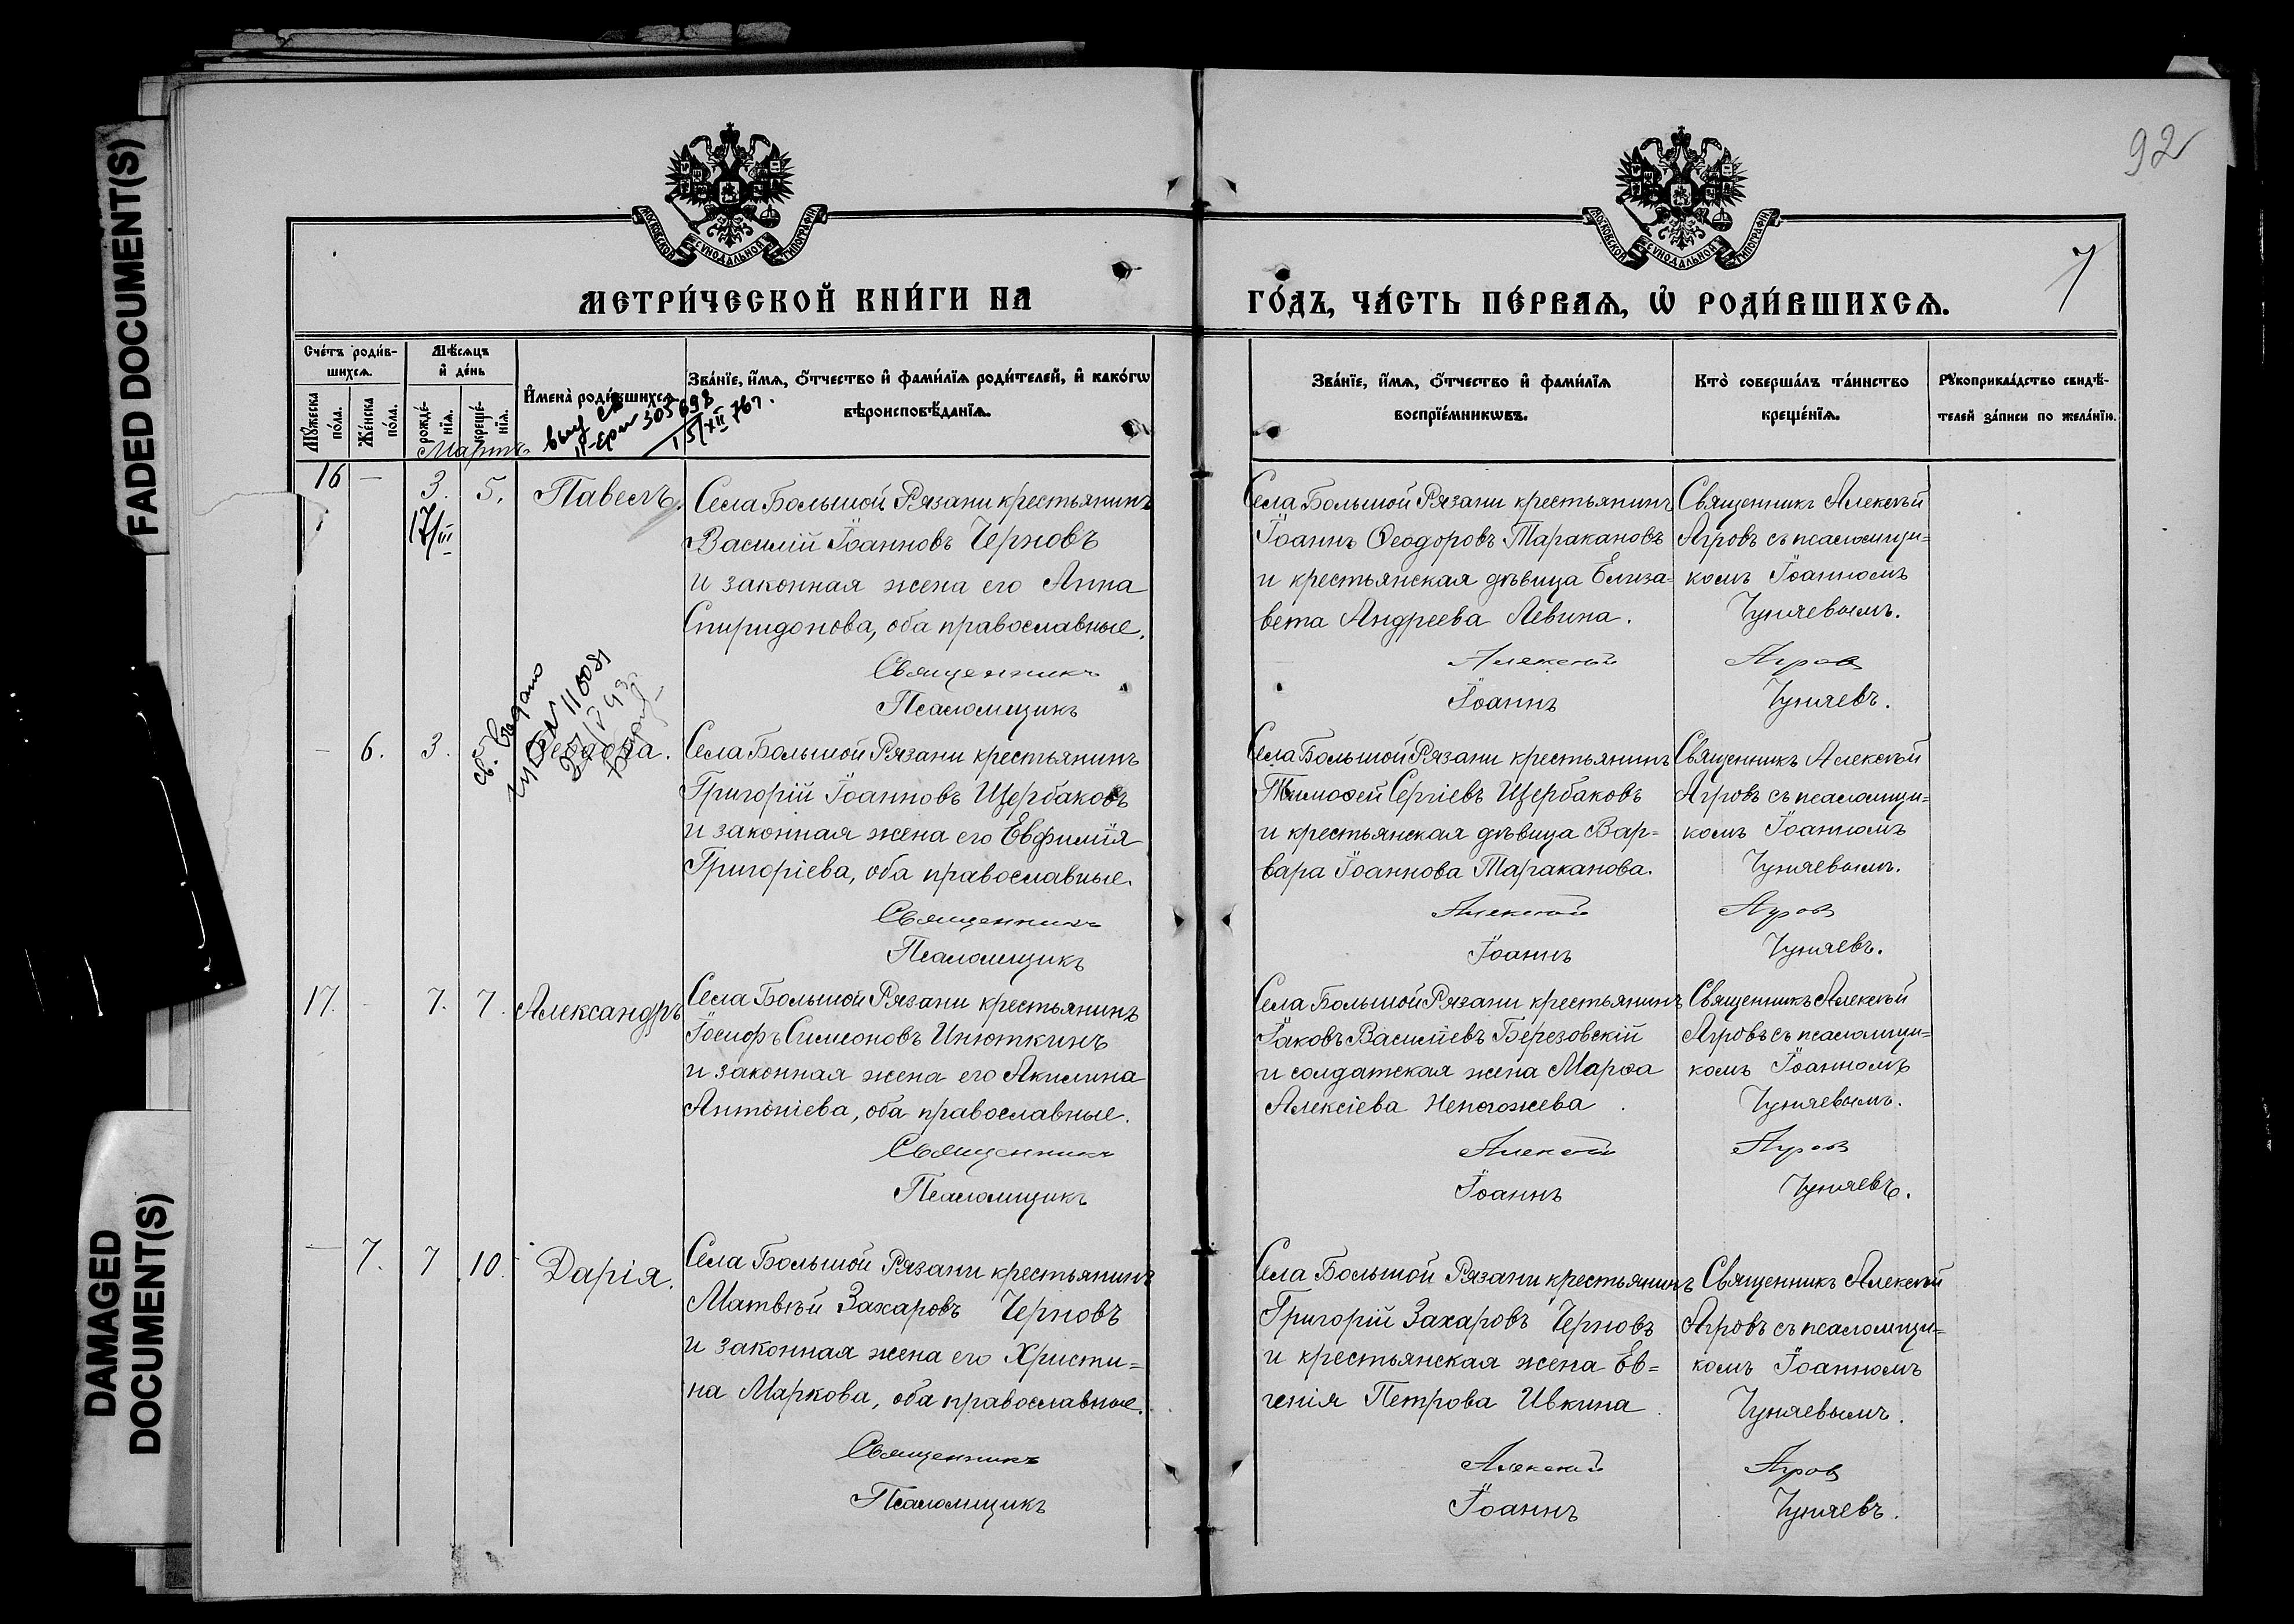 FADED DOCUMENT(S)
DAMAGED
DOCUMENT(S)
92
7
МОСКОВСКОЙ СѴНОДАЛЬНОЙ ТИПОГРАФІИ
МОСКОВСКОЙ СѴНОДАЛЬНОЙ ТИПОГРАФІИ
МЕТРИ́ЧЕСКОЙ КНИ́ГИ НА
ГО́ДЪ, ЧА́СТЬ ПЕ́РВАѦ, Ѡ҆ РОДИ́ВШИХСѦ.
Сче́тъ роди́в-
шихсѧ.
Мѣ́сѧцъ
и҆ де́нь
Мꙋ́жеска
по́ла.
Же́нска
по́ла.
рожде́-
нїѧ.
креще́-
нїѧ.
И҆мена̀ роди́вшихсѧ.
Зва́нїе, и҆́мѧ, ѻ҆́тчество и҆ фами́лїѧ роди́телей, и҆ како́гѡ
вѣроисповѣ́данїѧ.
Зва́нїе, и҆́мѧ, ѻ҆́тчество и҆ фами́лїѧ
воспрїе́мникѡвъ.
Кто̀ соверша́лъ та́инство
креще́нїѧ.
Рꙋкоприкла́дство свидѣ́-
телей за́писи по жела́нїю.
Мартъ
305698
15/XII 76 г.
16
—
3.
5.
17/III
Павелъ.
Села Большой Рязани крестьянинъ
Василій Іоанновъ Черновъ
и законная жена его Анна
Спиридонова, оба православные.
Священникъ
Псаломщикъ
Села Большой Рязани крестьянинъ
Іоаннъ Ѳеодоровъ Таракановъ
и крестьянская дѣвица Елиза-
вета Андреева Левина.
Алексѣй
Іоаннъ
Священникъ Алексѣй
Агровъ съ псаломщи-
комъ Іоанномъ
Чуняевымъ.
Агровъ
Чуняевъ.
св-во выдано
11008
—
6.
3.
Села Большой Рязани крестьянинъ
Григорій Іоанновъ Щербаковъ
и законная жена его Евфимія
Григоріева, оба православные.
Священникъ
Псаломщикъ
Села Большой Рязани крестьянинъ
Тимоѳей Сергіевъ Щербаковъ
и крестьянская дѣвица Вар-
вара Іоаннова Тараканова.
Алексѣй
Іоаннъ
Священникъ Алексѣй
Агровъ съ псаломщи-
комъ Іоанномъ
Чуняевымъ.
Агровъ
Чуняевъ.
17.
7.
7.
Александръ
Села Большой Рязани крестьянинъ
Іосифъ Симеоновъ Инюткинъ
и законная жена его Акилина
Антоніева, оба православные.
Священникъ
Псаломщикъ
Села Большой Рязани крестьянинъ
Іаковъ Василіевъ Березовскій
и солдатская жена Марѳа
Алексіева Непогожева.
Алексѣй
Іоаннъ
Священникъ Алексѣй
Агровъ съ псаломщи-
комъ Іоанномъ
Чуняевымъ.
Агровъ
Чуняевъ.
—
7.
7
10.
Дарія.
Села Большой Рязани крестьянинъ
Матвѣй Захаровъ Черновъ
и законная жена его Христи-
на Маркова, оба православные.
Священникъ
Псаломщикъ
Села Большой Рязани крестьянинъ
Григорій Захаровъ Черновъ
и крестьянская жена Ев-
генія Петрова Ивкина.
Алексѣй
Іоаннъ
Священникъ Алексѣй
Агровъ съ псаломщи-
комъ Іоанномъ
Чуняевымъ.
Агровъ
Чуняевъ.